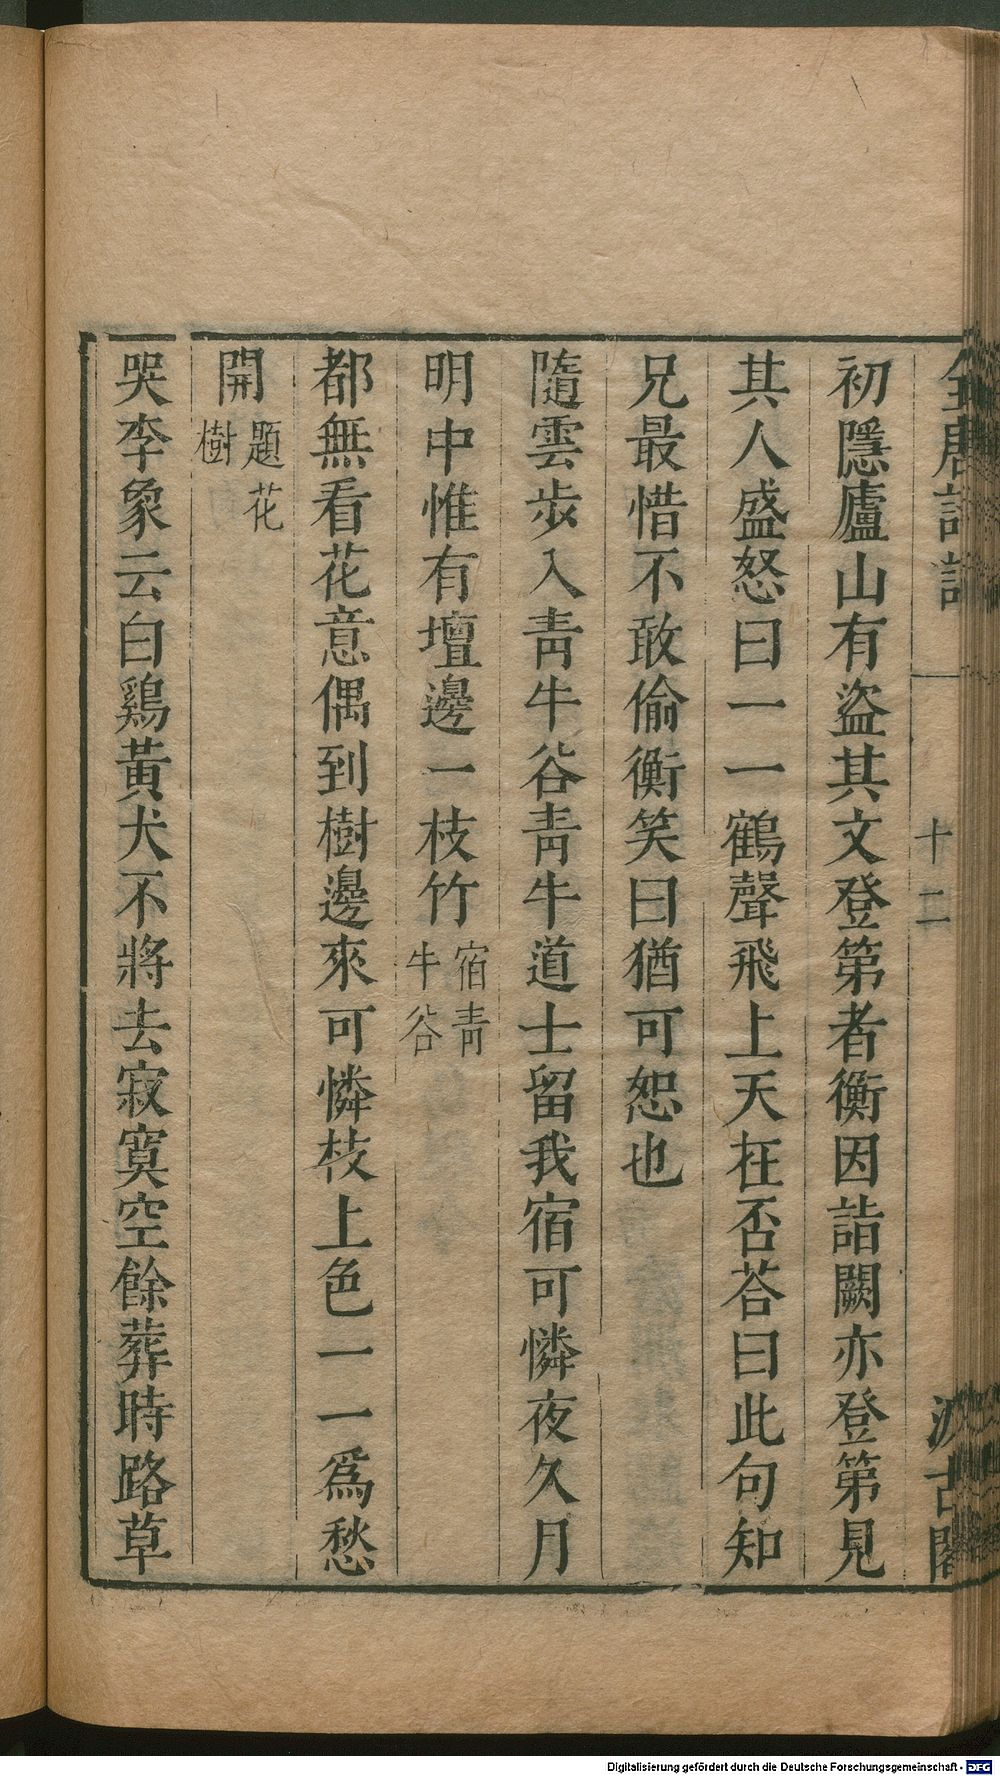 全唐詩話
十二
汲古閣
初隱廬山有盜其文登第者衡因詣闕亦登第見
其人盛怒曰一一鶴聲飛上天在否荅曰此句知
兄最惜不敢偷衡笑曰猶可恕也
隨雲步入青牛谷青牛道士留我宿可憐夜久月
明中惟有壇邊一枝竹宿青牛谷
都無看花意偶到樹邊來可憐枝上色一一爲愁
開題花樹
哭李象云白鷄黃犬不將去寂寞空餘葬時路草
Digitalisierung gefördert durch die Deutsche Forschungsgemeinschaft - DFG